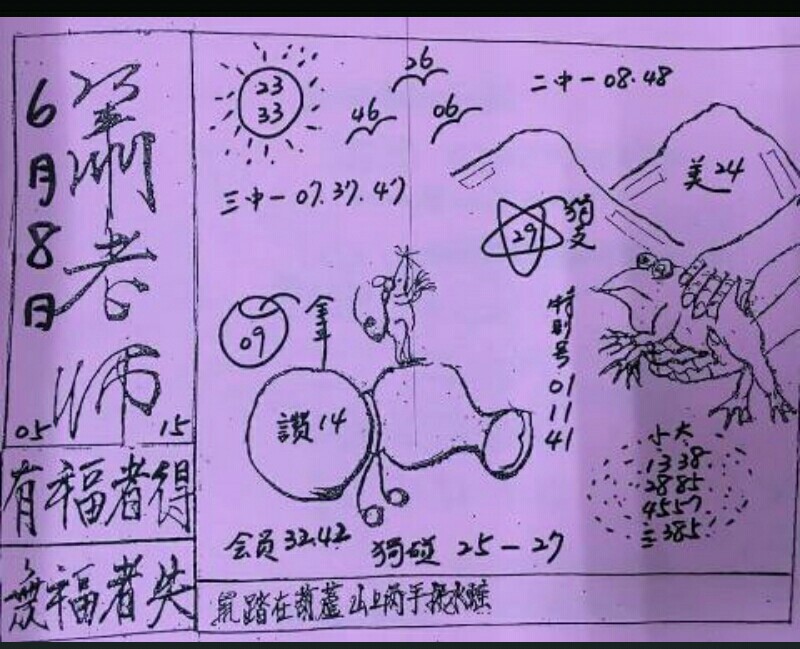 6月8日
蕭老师
05 15
有福者得
無福者失
23
33
26
46
06
二中一08.48
三中一07.37.47
美24
29
独支
09
全年
讃14
特别号
01
11
41
小大
1338
2885
4557
三385
会员32.42
独碰 25-27
鼠踏在葫蘆山上两手提水